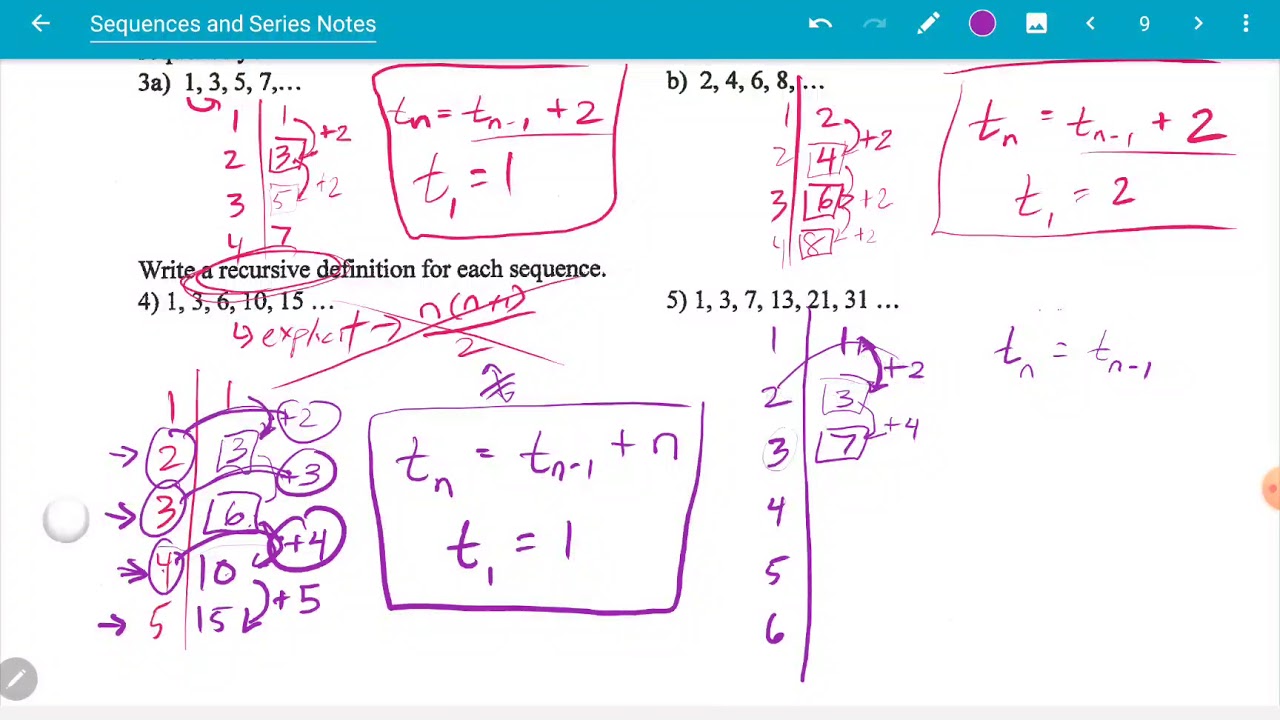 Sequences and Series Notes
9
3a) 1, 3, 5, 7,...
1 1 +2
2 3 +2
3 5
4 7
tn = tn-1 + 2
t1 = 1
b) 2, 4, 6, 8, ...
1 2 +2
2 4
3 6 +2
4 8 +2
tn = tn-1 + 2
t1 = 2
Write a recursive definition for each sequence.
4) 1, 3, 6, 10, 15 ...
↳ explicit → n(n+1)
2
1 1 +2
→ 2 3 +3
→ 3 6 +4
→ 4 10 +5
→ 5 15
tn = tn-1 + n
t1 = 1
5) 1, 3, 7, 13, 21, 31 ...
1 1 +2
2 3 +4
3 7
4
5
6
tn = tn-1